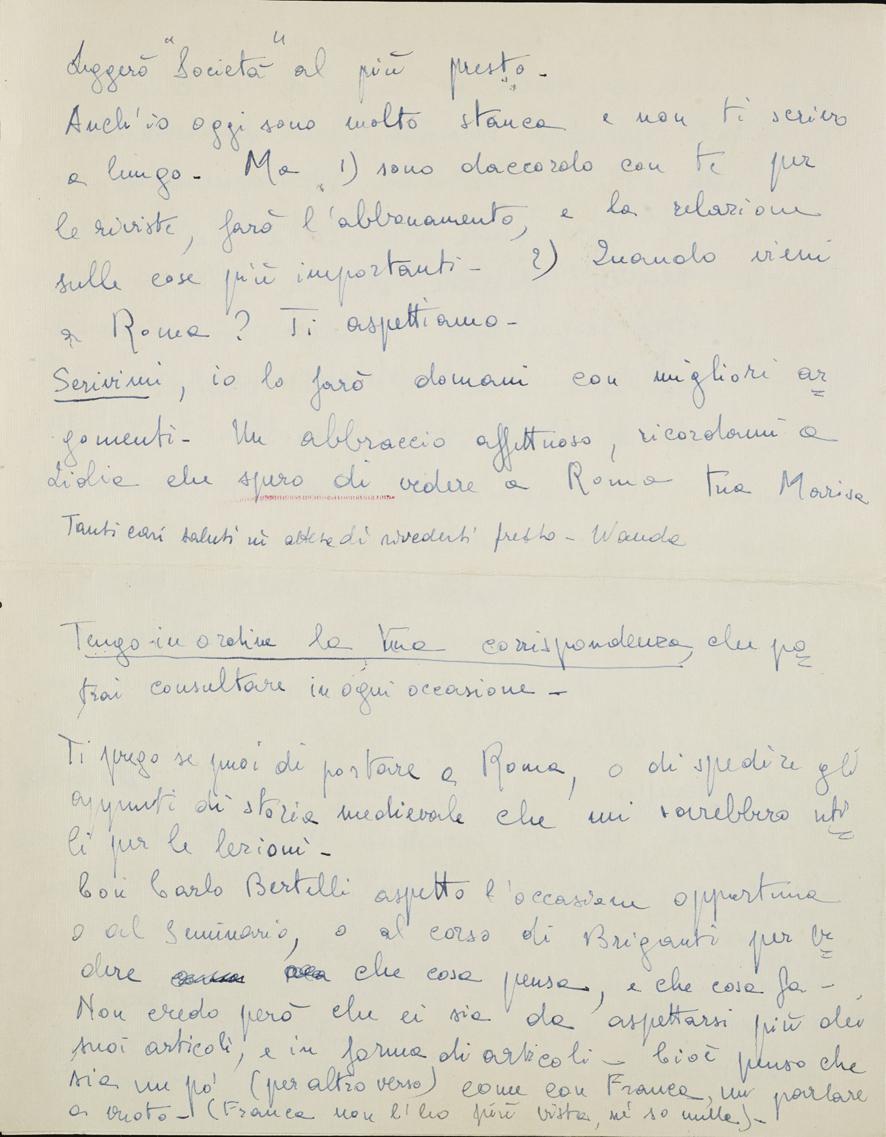 Leggerò "Società" al più presto -
Anch'io oggi sono molto stanca e non ti scrivo
a lungo - Ma 1) sono daccordo con te per
le riviste, farò l'abbonamento, e la relazione
sulle cose più importanti - 2) Quando vieni
a Roma? Ti aspettiamo -
Scrivimi, io lo farò domani con migliori ar
gomenti - Un abbraccio affettuoso, ricordami a
Lidia che spero di vedere a Roma tua Marisa
Tanti cari saluti in attesa di rivederti presto - Wanda
Tengo in ordine la tua corrispondenza, che po
trai consultare in ogni occasione -
Ti prego se puoi di portare a Roma, o di spedire gli
appunti di storia medievale che mi sarebbero uti
li per le lezioni -
Con Carlo Bertelli aspetto l'occasione opportuna
o al Seminario, o al corso di Briganti per ve
dere che cosa pensa, e che cosa fa -
Non credo però che ci sia da aspettarsi più dei
suoi articoli, e in forma di articoli - Cioè penso che
sia un po' (per altro verso) come con Franca, un parlare
a vuoto - (Franca non l'ho più vista, né so nulla) -